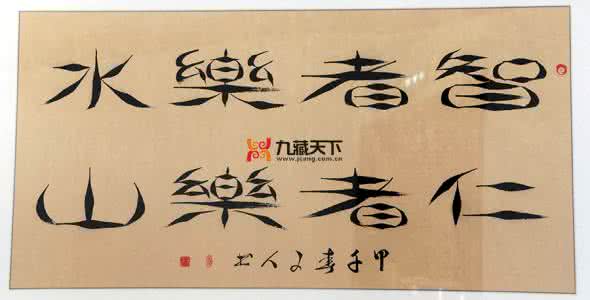 智者樂水
九藏天下
www.jcang.com.cn
仁者樂山
甲午春人书